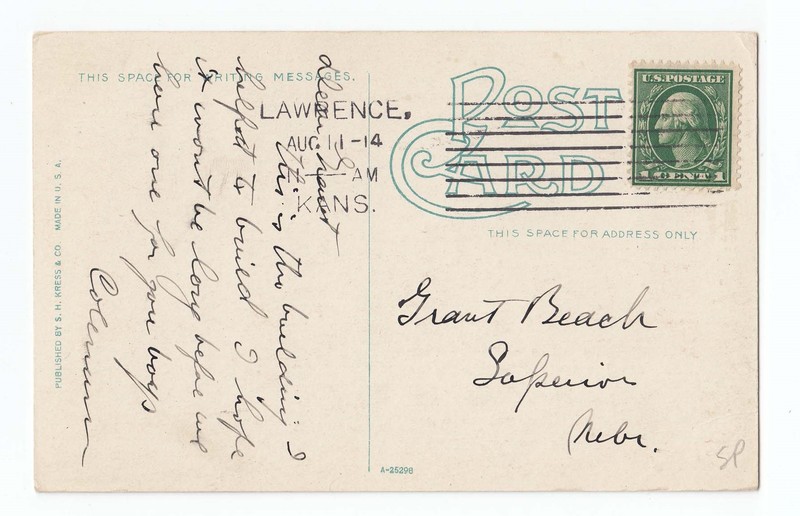 THIS SPACE FOR WRITING MESSAGES.
dear Grant
this is the building I
helped to build I hope
it wont be long before we
have one for you boys
Coleman
PUBLISHED BY S. H. KRESS & CO. MADE IN U. S. A.
LAWRENCE,
AUG 11-14
AM
KANS.
POST
CARD
U.S. POSTAGE
1 CENT 1
THIS SPACE FOR ADDRESS ONLY
Grant Beach
Superior
Nebr.
A-25298